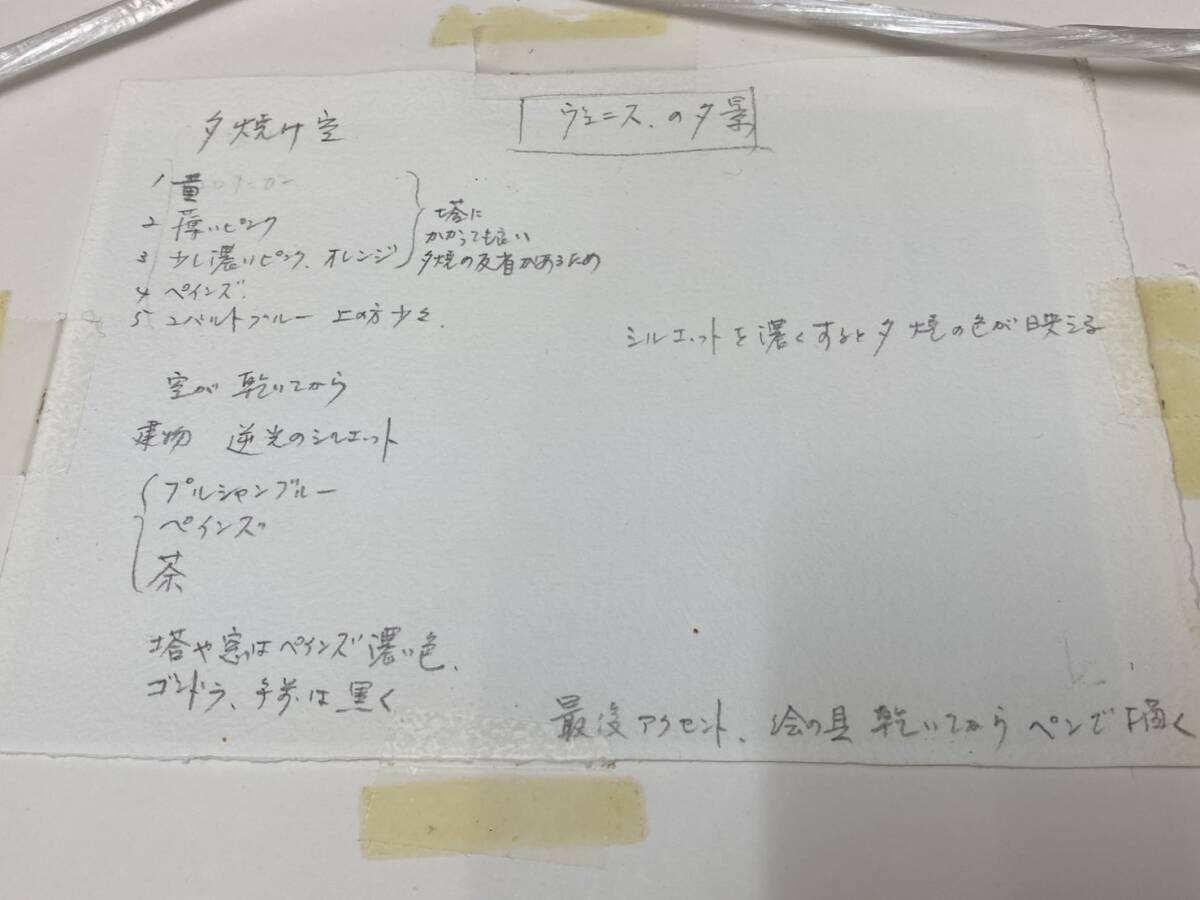 ヴェニス、の夕景
夕焼け空
1 黄
2 薄いピンク
3 少し濃いピンク、オレンジ
塔に
かかっても良い
夕焼の反省があるため
4 ペインズ、
5 コバルトブルー 上の方少々、
シルエットを濃くすると夕焼の色が映える
空が乾いてから
建物 逆光のシルエット
プルシャンブルー
ペインズ
茶
塔や窓はペインズ濃い色、
ゴンドラ、手前は黒く
最後アクセント、絵の具乾いてからペンで描く